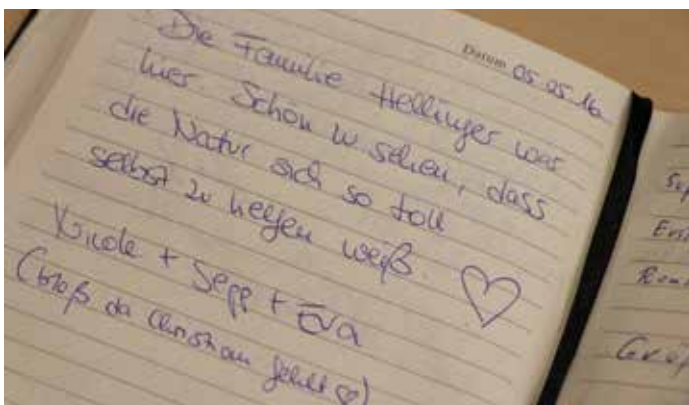 Datum 05.05.16
Die Familie Hellinger war
hier. Schön zu sehen, dass
die Natur sich so toll
selbst zu helfen weiß. ♡
Nicole + Sepp + Eva
(bloß da Christian fehlt ♡)